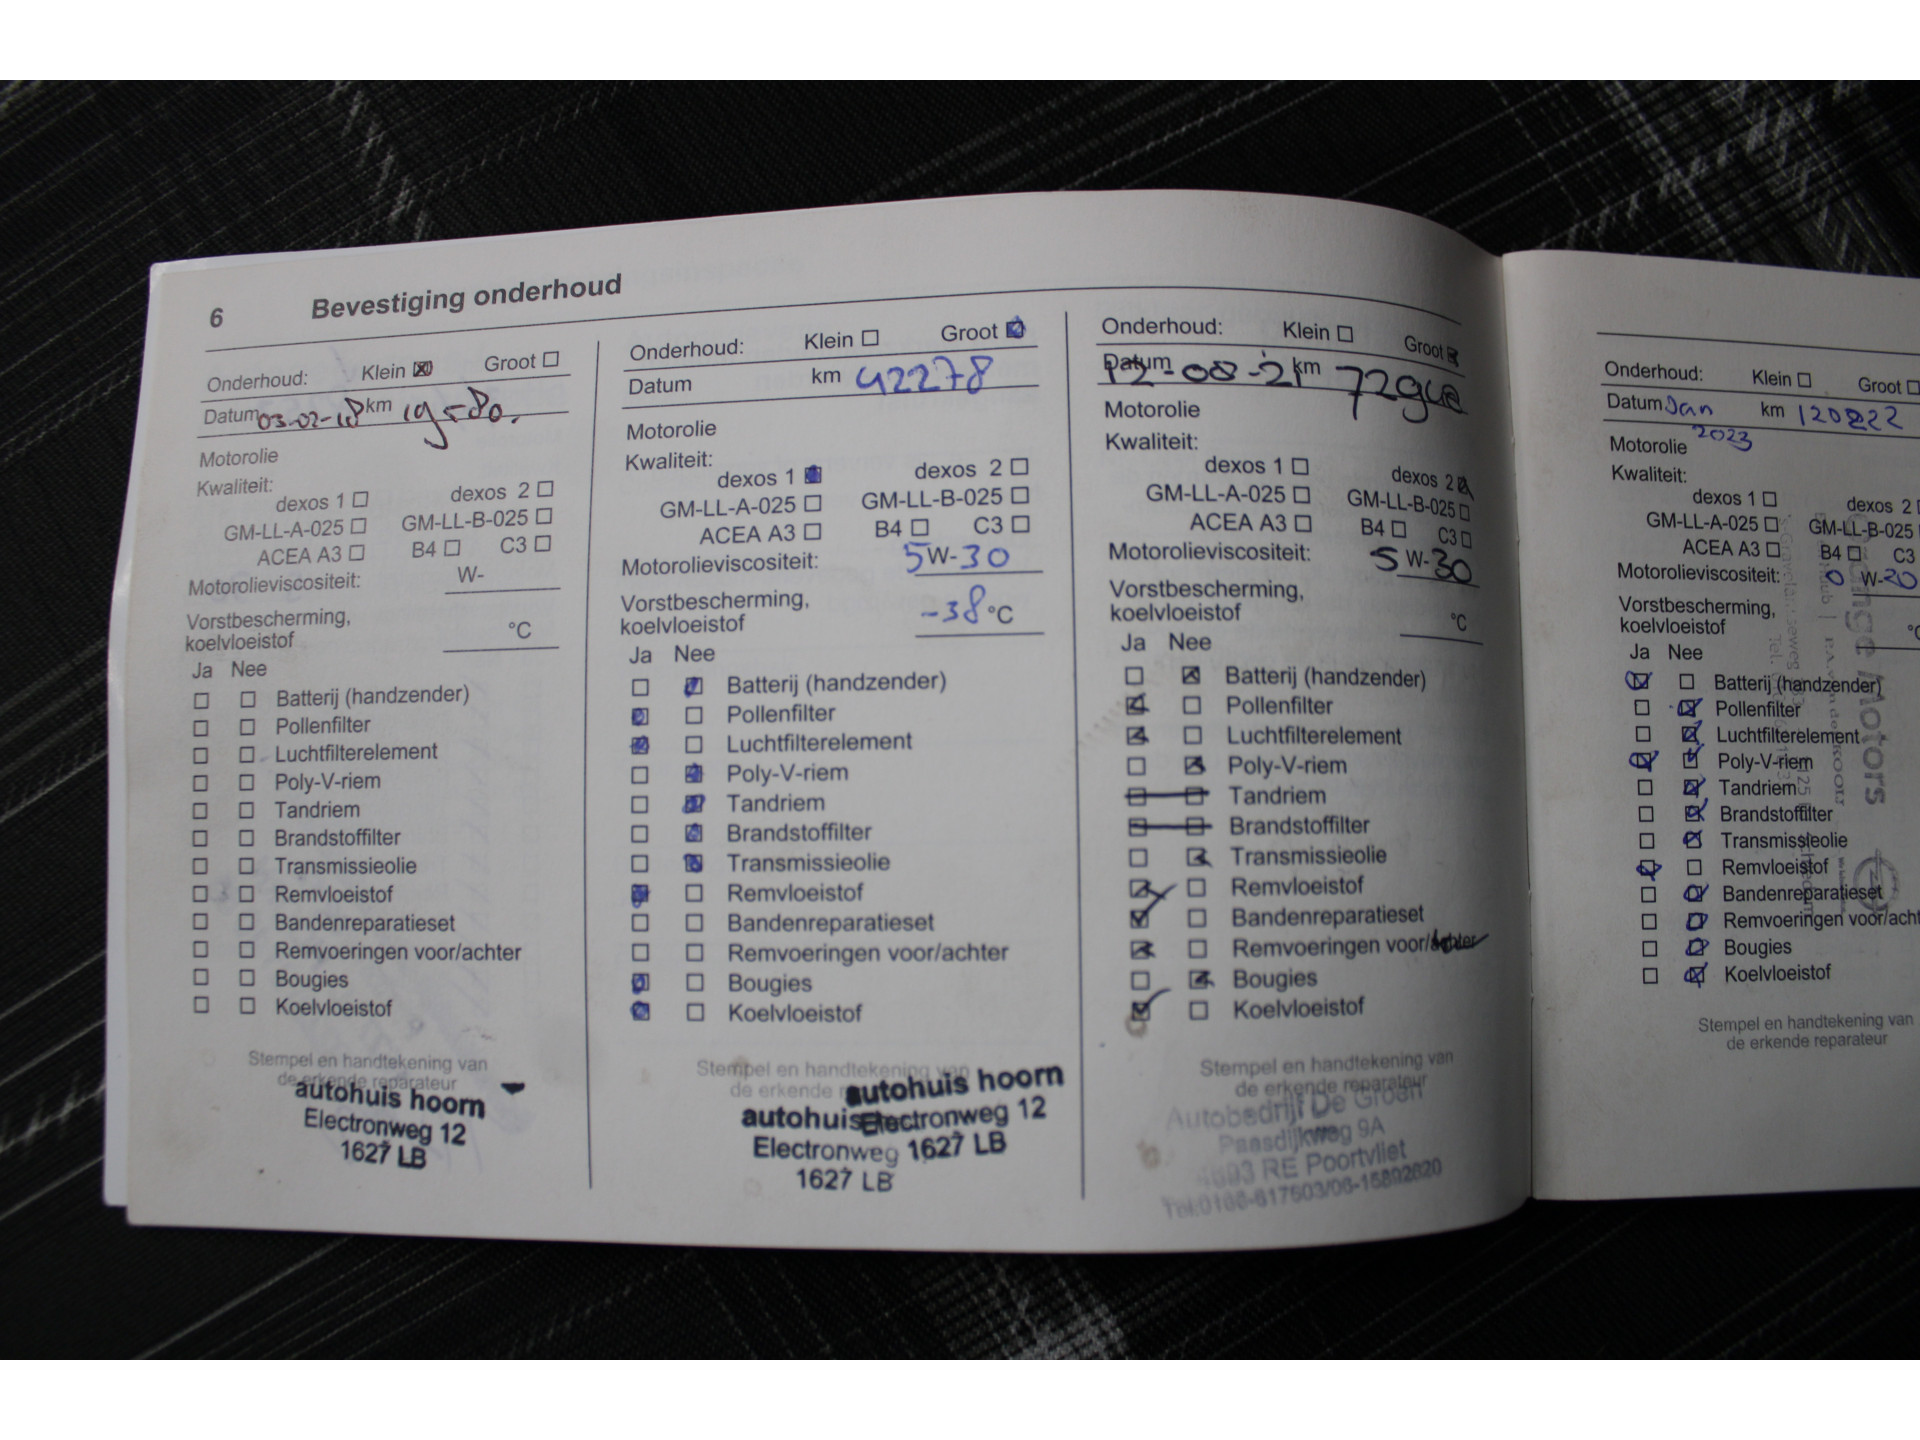 6 Bevestiging onderhoud
Onderhoud: Klein Groot
Datum 03-02-18 km
Motorolie
Kwaliteit:
dexos 1 dexos 2
GM-LL-A-025 GM-LL-B-025
ACEA A3 B4 C3
Motorolieviscositeit: W-
Vorstbescherming,
koelvloeistof °C
Ja Nee
Batterij (handzender)
Pollenfilter
Luchtfilterelement
Poly-V-riem
Tandriem
Brandstoffilter
Transmissieolie
Remvloeistof
Bandenreparatieset
Remvoeringen voor/achter
Bougies
Koelvloeistof
Stempel en handtekening van
de erkende reparateur
autohuis hoorn
Electronweg 12
1627 LB
Onderhoud: Klein Groot
Datum km 42278
Motorolie
Kwaliteit:
dexos 1 dexos 2
GM-LL-A-025 GM-LL-B-025
ACEA A3 B4 C3
Motorolieviscositeit: 5W-30
Vorstbescherming,
koelvloeistof -38 °C
Ja Nee
Batterij (handzender)
Pollenfilter
Luchtfilterelement
Poly-V-riem
Tandriem
Brandstoffilter
Transmissieolie
Remvloeistof
Bandenreparatieset
Remvoeringen voor/achter
Bougies
Koelvloeistof
Stempel en handtekening van
de erkende
autohuis hoorn
Electronweg 12
1627 LB
autohuis
Electronweg
1627 LB
Onderhoud: Klein Groot
Datum 12-08-21 km
Motorolie
Kwaliteit:
dexos 1 dexos 2
GM-LL-A-025 GM-LL-B-025
ACEA A3 B4 C3
Motorolieviscositeit: 5 W-30
Vorstbescherming,
koelvloeistof °C
Ja Nee
Batterij (handzender)
Pollenfilter
Luchtfilterelement
Poly-V-riem
Tandriem
Brandstoffilter
Transmissieolie
Remvloeistof
Bandenreparatieset
Remvoeringen voor/achter
Bougies
Koelvloeistof
Stempel en handtekening van
de erkende reparateur
Autobedrijf De Groen
Paasdijkweg 9A
4693 RE Poortvliet
Tel:0166-617503/06-15892620
Onderhoud: Klein Groot
Datum Jan km
2023
Motorolie
Kwaliteit:
dexos 1 dexos 2
GM-LL-A-025 GM-LL-B-025
ACEA A3 B4 C3
Motorolieviscositeit: 0 W-20
Vorstbescherming,
koelvloeistof
Ja Nee
Batterij (handzender)
Pollenfilter
Luchtfilterelement
Poly-V-riem
Tandriem
Brandstoffilter
Transmissieolie
Remvloeistof
Bandenreparatieset
Remvoeringen voor/acht
Bougies
Koelvloeistof
Motors
Stempel en handtekening van
de erkende reparateur